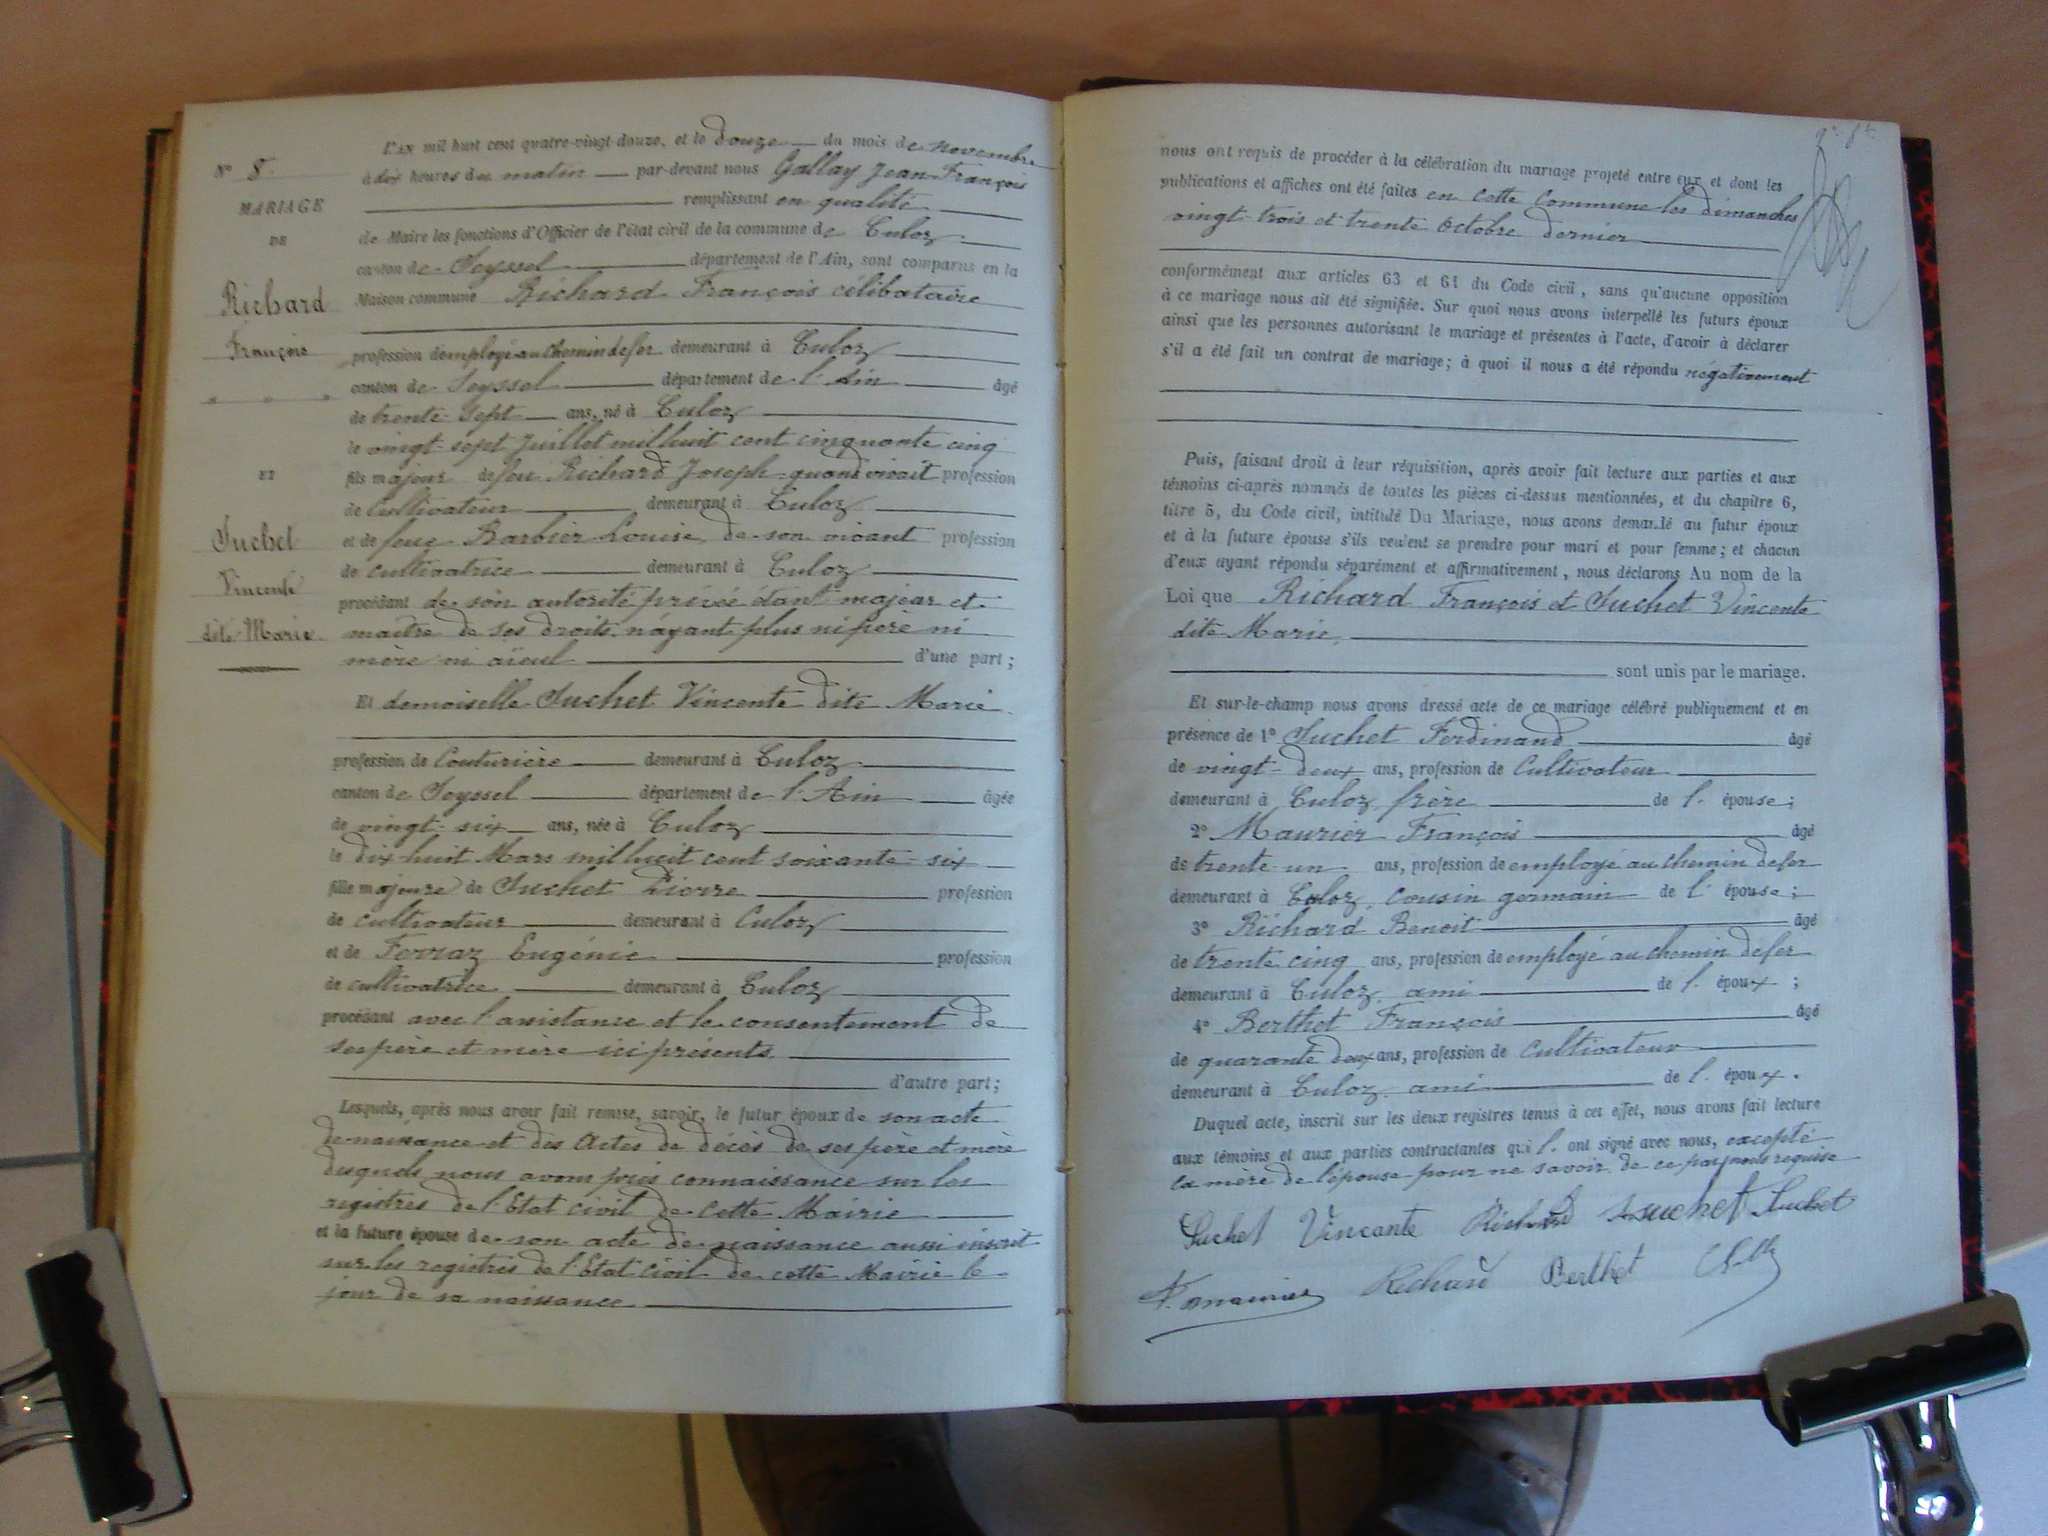 N° 8.
MARIAGE
DE
Richard
François
ET
Suchet
Vincente
dite Marie
L'AN mil huit cent quatre-vingt-douze, et le douze du mois de novembre
à dix heures du matin par-devant nous Gallay Jean-François
remplissant en qualité
de Maire les fonctions d'Officier de l'état civil de la commune de Culoz
canton de Seyssel département de l'Ain, sont comparus en la
Maison commune Richard François célibataire
profession d'employé au chemin de fer demeurant à Culoz
canton de Seyssel département de l'Ain âgé
de trente-sept ans, né à Culoz
le vingt-sept Juillet mil huit cent cinquante cinq
fils majeur de feu Richard Joseph quand vivait profession
de Cultivateur demeurant à Culoz
et de feue Barbier Louise de son vivant profession
de cultivatrice demeurant à Culoz
procédant de son autorité privée étant majeur et
maître de ses droits, n'ayant plus ni père ni
mère ni aïeul d'une part ;
Et demoiselle Suchet Vincente dite Marie
profession de Couturière demeurant à Culoz
canton de Seyssel département de l'Ain âgée
de vingt-six ans, née à Culoz
le dix huit Mars mil huit cent soixante-six
fille majeure de Suchet Pierre profession
de cultivateur demeurant à Culoz
et de Ferraz Eugénie profession
de cultivatrice demeurant à Culoz
procédant avec l'assistance et le consentement de
ses père et mère ici présents.
d'autre part ;
Lesquels, après nous avoir fait remise, savoir, le futur époux de son acte
de naissance et des Actes de décès de ses père et mère
desquels nous avons pris connaissance sur les
registres de l'Etat civil de cette Mairie
et la future épouse de son acte de naissance aussi inscrit
sur les registres de l'Etat civil de cette Mairie le
jour de sa naissance.
nous ont requis de procéder à la célébration du mariage projeté entre eux et dont les
publications et affiches ont été faites en cette Commune les dimanches
vingt-trois et trente Octobre dernier
conformément aux articles 63 et 64 du Code civil, sans qu'aucune opposition
à ce mariage nous ait été signifiée. Sur quoi nous avons interpellé les futurs époux
ainsi que les personnes autorisant le mariage et présentes à l'acte, d'avoir à déclarer
s'il a été fait un contrat de mariage ; à quoi il nous a été répondu négativement
Puis, faisant droit à leur réquisition, après avoir fait lecture aux parties et aux
témoins ci-après nommés de toutes les pièces ci-dessus mentionnées, et du chapitre 6,
titre 5, du Code civil, intitulé Du Mariage, nous avons demandé au futur époux
et à la future épouse s'ils veulent se prendre pour mari et pour femme ; et chacun
d'eux ayant répondu séparément et affirmativement, nous déclarons Au nom de la
Loi que Richard François et Suchet Vincente
dite Marie
sont unis par le mariage.
Et sur-le-champ nous avons dressé acte de ce mariage célébré publiquement et en
présence de 1° Suchet Ferdinand âgé
de vingt-deux ans, profession de Cultivateur
demeurant à Culoz, frère de l'épouse ;
2° Maurier François âgé
de trente-un ans, profession de employé au chemin de fer
demeurant à Culoz, cousin germain de l'épouse ;
3° Richard Benoit âgé
de trente cinq ans, profession de employé au chemin de fer
demeurant à Culoz ami de l'époux ;
4° Berthet François âgé
de quarante deux ans, profession de Cultivateur
demeurant à Culoz, ami de l'époux.
Duquel acte, inscrit sur les deux registres tenus à cet effet, nous avons fait lecture
aux témoins et aux parties contractantes qui l'ont signé avec nous, excepté
la mère de l'épouse pour ne savoir de ce par nous requise
Suchet Vincente Richard Suchet Suchet
F. maurier Richard Berthet